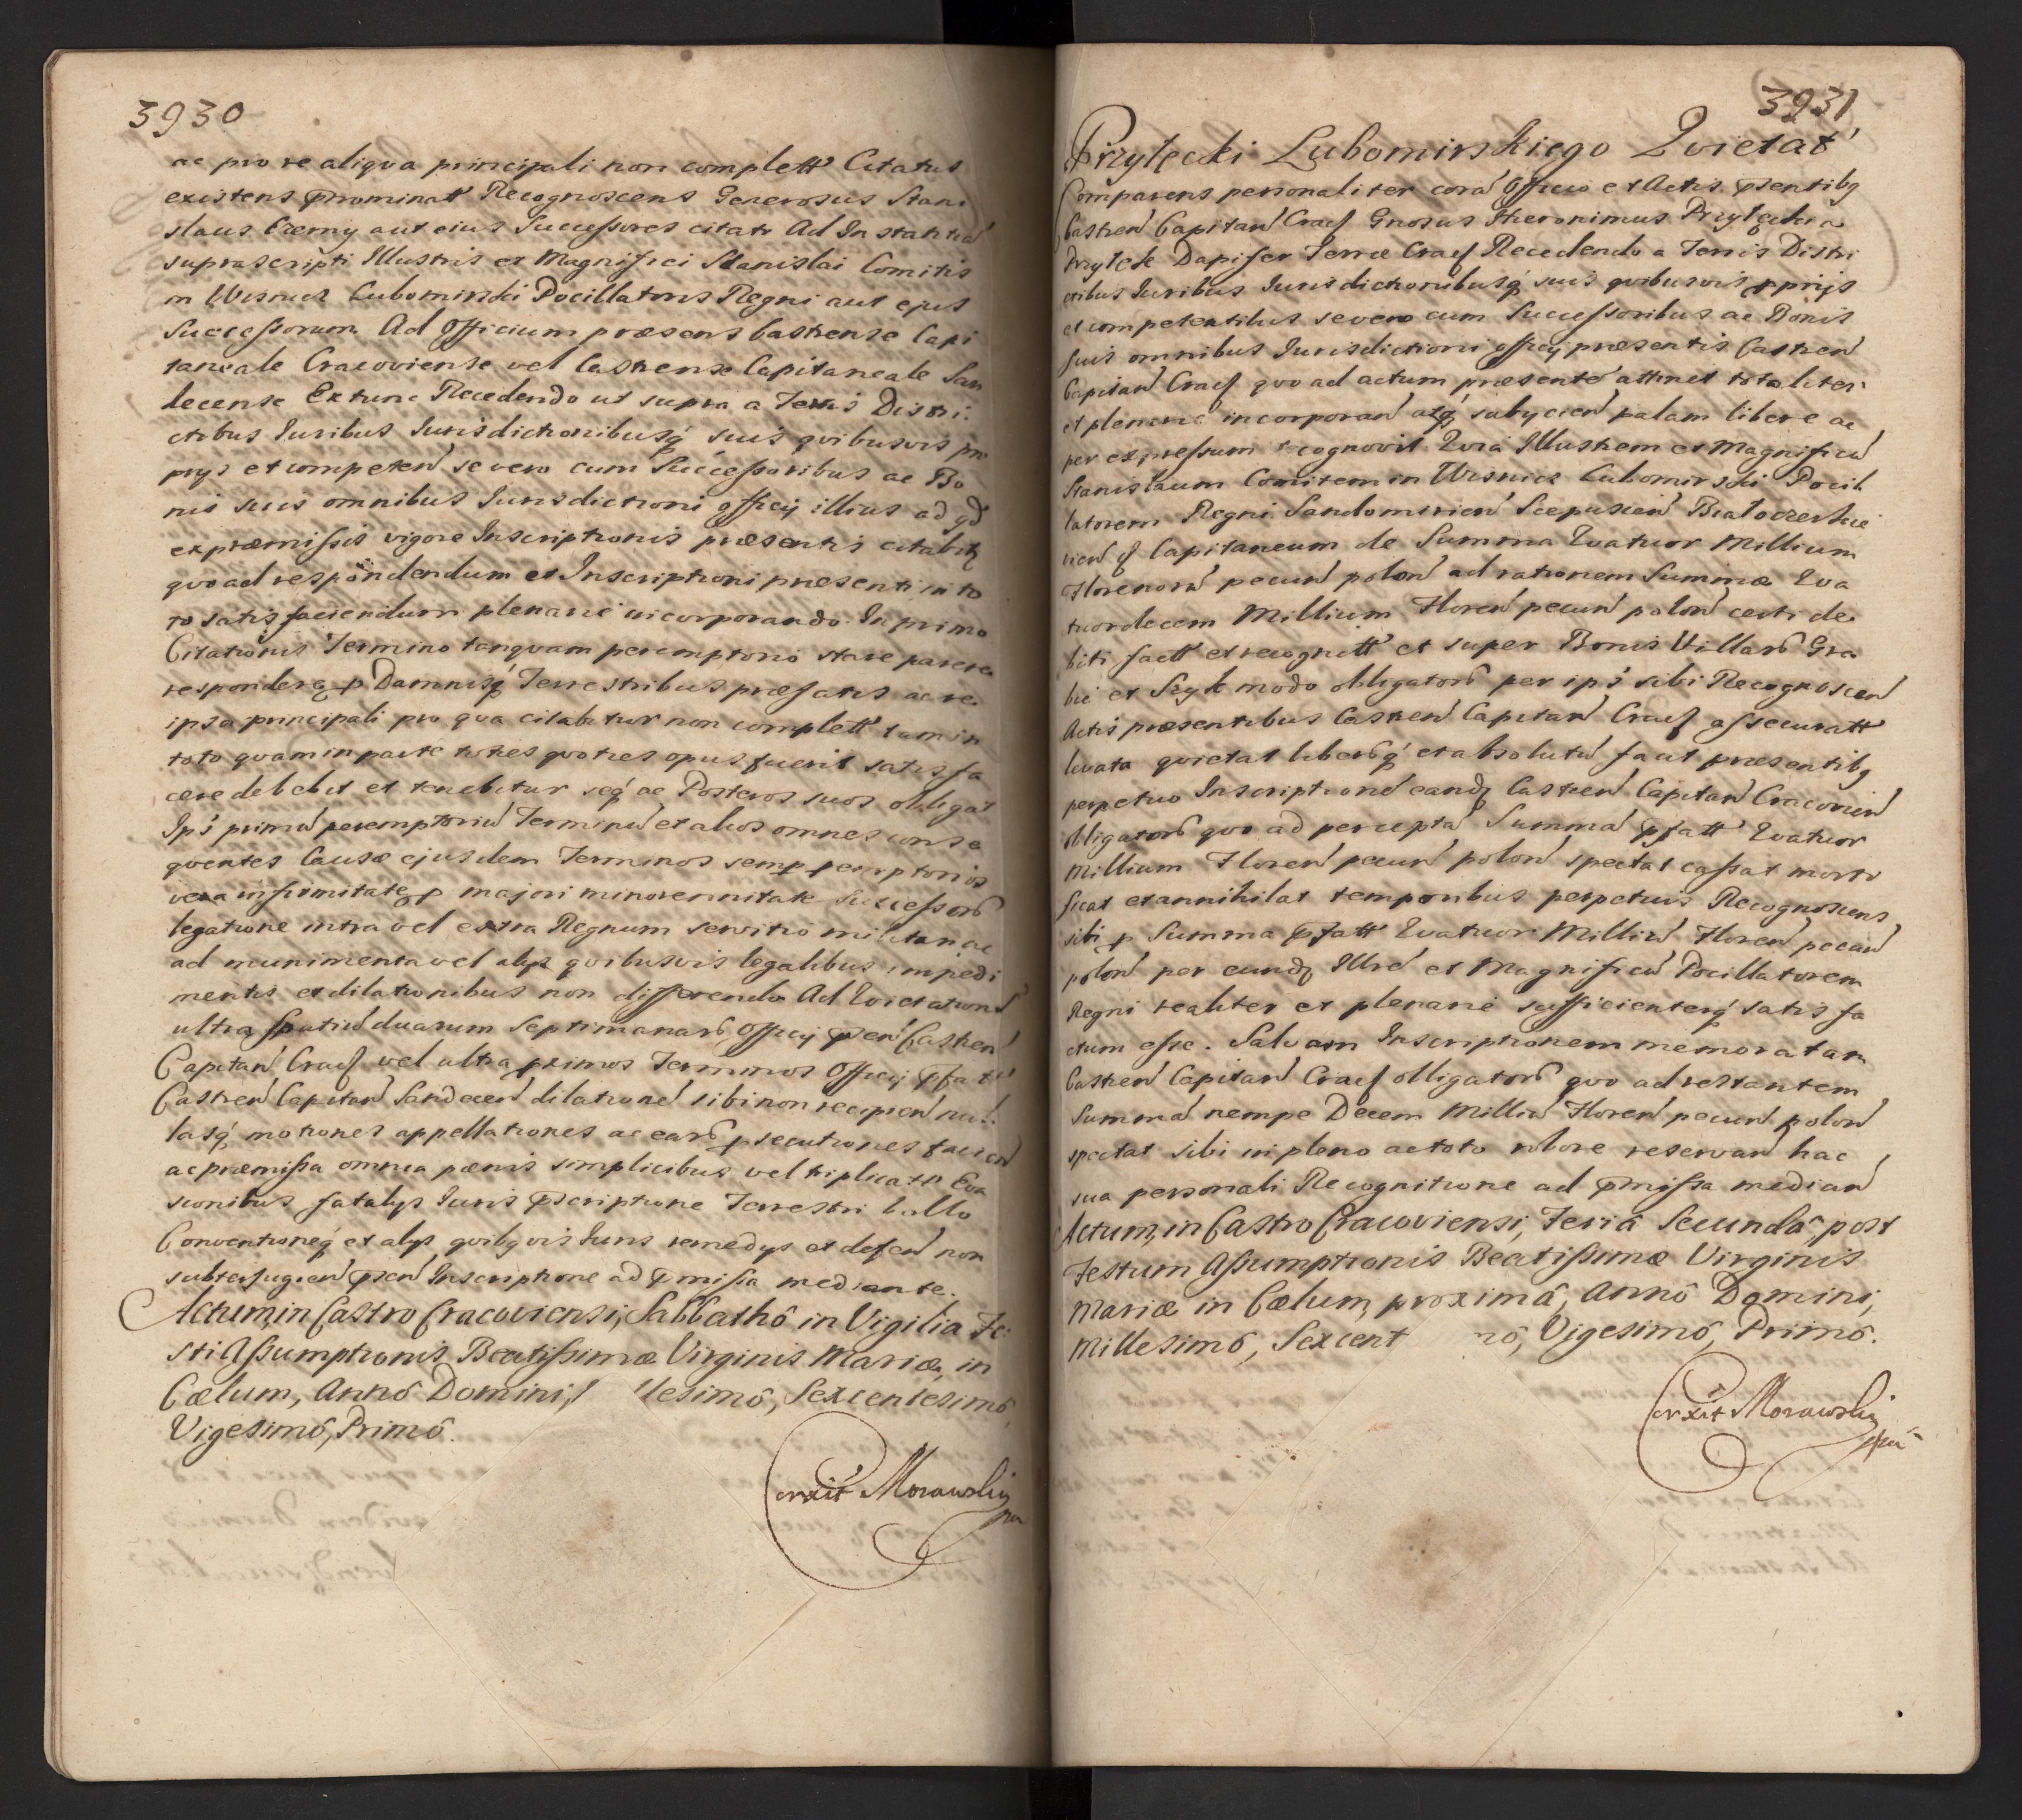 3930
ac pro re aliqva principali non complett Citatus
existens prominatt Recognoscens Generosus Stani
slaus Czerny aut eius Successores citatr Ad Instantiã
suprascripti Illustris et Magnifici Stanislai Comitis
in Wisnicz Lubomirski Pocillatoris Regni aut ejus
Successorum Ad Officium præsens Castrense Capi
taneale Cracoviense vel Castrense Capitaneale San
decense Extunc Recedendo ut supra a Terris Distri
ctibus Iuribus Iurisdictionibusq suis qvibusvis pro
prijs et competen se vero cum Successoribus ac Bo
nis suis omnibus Iurisdictioni officij illius ad qd
ex præmissis vigore Inscriptionis præsentis citabitr
qvo ad respondendum et Inscriptioni præsenti in to
to satisfaciendum plenarie incorporando In primo
Citationis Termino tanqvam peremptorio stare parere
respondereq p Damnisq Terrestribus præfatis ac re
ipsa principali pro qva citabitur non complett tam in
toto qvam in parte toties qvoties opus fuerit satisfa
cere debebit et tenebitur seq ac Posteros suos obligat
Ips primũ peremptoriũ Terminũ et alios omnes conse
qventes Causæ ejusdem Terminos semp pemptorios
vera infirmitate p majori minorennitate Successorũ
legatione intra vel extra Regnum servitio militari ac
ad munimenta vel alys qvibusvis legalibus impedi
mentis et dilationibus non differendo Ad Qvietationẽ
ultra spatiũ duarum Septimanarũ Officij psen Castren
Capitan Cracs vel ultra primos Terminos Officij pfat
Castren Capitan Sandecen dilationẽ sibi non recipien nul
lasq motiones appellationes ac earũ psecutiones facien
ac præmissa omnia pænis simplicibus vel triplicatr Eva
sionibus fatalys Iuris pscriptione Terrestri bello
Conventioneq et alys qvibqvis Iuris remedys et defen non
subterfugien psen Inscriptione ad pmissa mediante.
Actum in Castro Cracoviensi, Sabbathô in Vigilia Fe
sti Assumptionis Beatissimæ Virginis Mariæ, in
Cælum, Annô Domini, lesimô, Sexcentesimô,
Vigesimô, Primô.
Corrxit Morawski
mp
3931
Przyłęcki Lubomirskiego Qvietat
Comparens personaliter corã Officio et Actis psentibq
Castren Capitan Cracs Gnosus Hieronimus Przyłęcki a
Przyłęk Dapifer Terræ Cracs Recedendo a Terris Distri
ctibus Iuribus Iurisdictionibusq suis qvibusvis pprijs
et competentibus se vero cum Successoribus ac Bonis
suis omnibus Iurisdictioni officij præsentis Castren
Capitan Cracs qvo ad actum præsentẽ attinet totaliter
et plenarie incorporan atq subycien palam libere ac
per expressum recognovit Qvia Illustrem et Magnificũ
Stanislaum Comitem in Wisnicz Lubomirski Pocil
latorem Regni Sandomirien Scepusien Białocerkie
vien q Capitaneum de Summa Qvatuor Millium
Florenorũ pecun polon ad rationem Summæ Qva
tuordecem Millium Floren pecun polon certi de
biti factt et recognitt et super Bonis Villarũ Gra
bie et Szyk modo obligatorio per ips sibi Recognoscen
Actis præsentibus Castren Capitan Cracs assecuratt
levata qvietat liberũq et absolutũ facit præsentibq
perpetuo Inscriptionẽ eandq Castren Capitan Cracovien
obligatoriũ qvo ad perceptã Summã pfatt Qvatuor
Millium Floren pecun polon spectat cassat morti
ficat et annihilat temporibus perpetuis Recognoscens
sibi p Summa pfatt Qvatuor Milliũ Floren pecun
polon per eundq Illrẽ et Magnificũ Pocillatorem
Regni realiter et plenarie sufficienterq satis fa
ctum esse. Salvam Inscriptionem memoratam
Castren Capitan Cracs obligatoriũ qvo ad restantem
Summã nempe Decem Milliũ Floren pecun polon
spectat sibi in pleno ac toto robore reservan hac
sua personali Recognitione ad pmissa median
Actum, in Castro Cracoviensi, Feriâ Secundâ, post
Festum Assumptionis Beatissimæ Virginis
Mariæ in Cælum, proximâ, Annô Domini,
Millesimô, Sexcent mô, Vigesimô, Primô.
Corrxit Morawski
mp